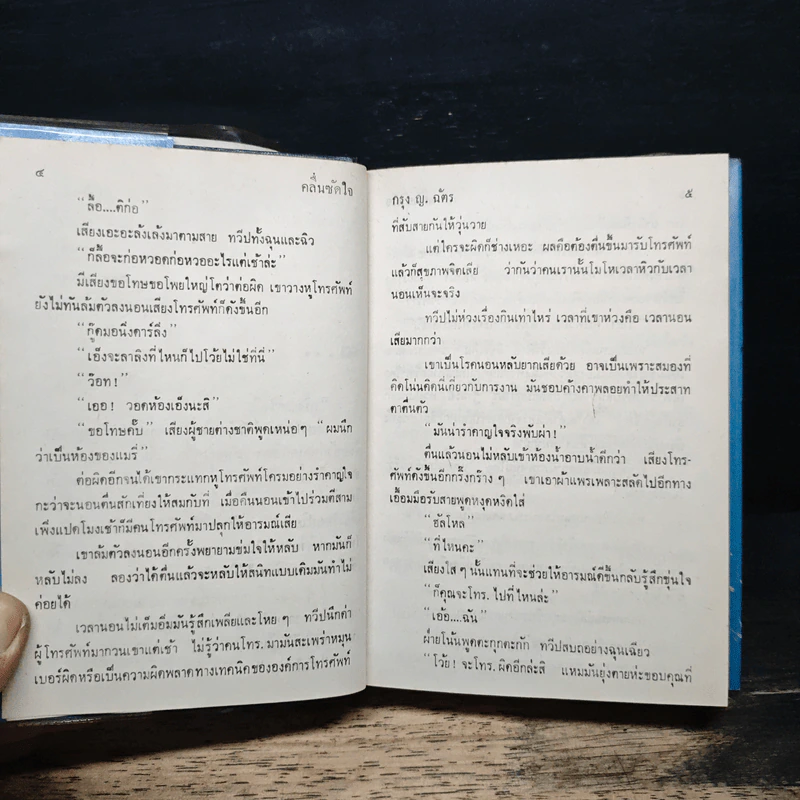 ๔
คลื่นซัดใจ
“ลื้อ....ติก่อ”
เสียงเอะอะลังเล้งมาตามสาย ทวีปทั้งฉุนและฉิว
“ก็ลื้อจะก่อหวอดก่อหวออะไรแต่เช้าล่ะ”
มีเสียงขอโทษขอโพยใหญ่โตว่าต่อผิด เขาวางหูโทรศัพท์
ยังไม่ทันล้มตัวลงนอนเสียงโทรศัพท์ก็ดังขึ้นอีก
“กู๊ดมอนิ่งดาร์ลิ่ง”
“เอ็งจะลาลิงที่ไหนก็ไปโว้ยไม่ใช่ที่นี่”
“ว๊อท!”
“เออ! วอดห้องเอ็งนะสิ”
“ขอโทษคั๊บ” เสียงผู้ชายต่างชาติพูดเหน่อๆ “ผมนึก
ว่าเป็นห้องของแมรี่”
ต่อผิดอีกจนได้เขากระแทกหูโทรศัพท์โครมอย่างรำคาญใจ
กะว่าจะนอนตื่นสักเที่ยงให้สมกับที่ เมื่อคืนนอนเข้าไปร่วมตีสาม
เพิ่งแปดโมงเช้าก็มีคนโทรศัพท์มาปลุกให้อารมณ์เสีย
เขาล้มตัวลงนอนอีกครั้งพยายามข่มใจให้หลับ หากมันก็
หลับไม่ลง ลองว่าได้ตื่นแล้วจะหลับให้สนิทแบบเดิมมันทำไม่
ค่อยได้
เวลานอนไม่เต็มอิ่มมันรู้สึกเพลียและโหย ๆ ทวีปนึกด่า
ผู้โทรศัพท์มากวนเขาแต่เช้า ไม่รู้ว่าคนโทร. มามันสะเพร่าหมุน
เบอร์ผิดหรือเป็นความผิดพลาดทางเทคนิคขององค์การโทรศัพท์
กรุง ญ. ฉัตร
๕
ที่สับสายกันให้วุ่นวาย
แต่ใครจะผิดก็ช่างเหอะ ผลคือต้องตื่นขึ้นมารับโทรศัพท์
แล้วก็สุขภาพจิตเสีย ว่ากันว่าคนเรานั้นโมโหเวลาหิวกับเวลา
นอนเห็นจะจริง
ทวีปไม่ห่วงเรื่องกินเท่าไหร่ เวลาที่เขาห่วงคือ เวลานอน
เสียมากกว่า
เขาเป็นโรคนอนหลับยากเสียด้วย อาจเป็นเพราะสมองที่
คิดโน่นคิดนี่เกี่ยวกับการงาน มันชอบค้างคาพลอยทำให้ประสาท
ตาตื่นตัว
“มันน่ารำคาญใจจริงพับผ่า!”
ตื่นแล้วนอนไม่หลับเข้าห้องน้ำอาบน้ำดีกว่า เสียงโทร-
ศัพท์ดังขึ้นอีกกริ๊งกร๊าง ๆ เขาเอาผ้าแพรเพลาะสลัดไปอีกทาง
เอื้อมมือรับสายพูดหงุดหงิดใส่
“ฮัลโหล”
“ที่ไหนคะ”
เสียงใส ๆ นั้นแทนที่จะช่วยให้อารมณ์ดีขึ้นกลับรู้สึกขุ่นใจ
“ก็คุณจะโทร. ไปที่ไหนล่ะ”
“เอ้อ....ฉัน”
ฝ่ายโน้นพูดตะกุกตะกัก ทวีปสบถอย่างฉุนเฉียว
“โว้ย! จะโทร. ผิดอีกล่ะสิ แหมมันยุ่งตายห่ะขอบคุณที่